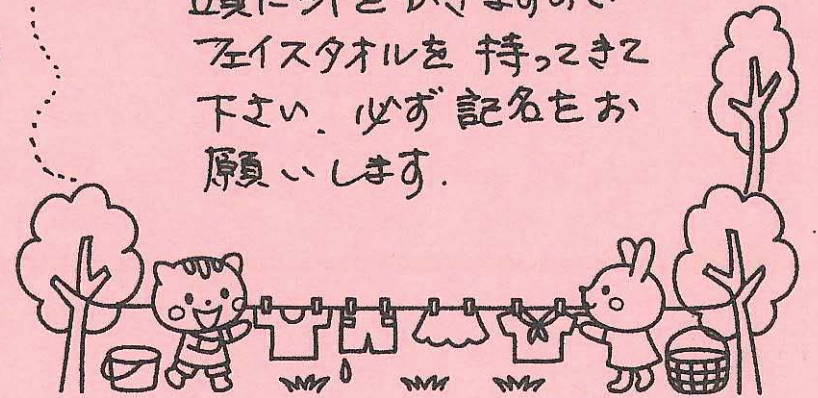 フェイスタオルを 持ってきて
下さい. 必ず 記名をお
願いします.